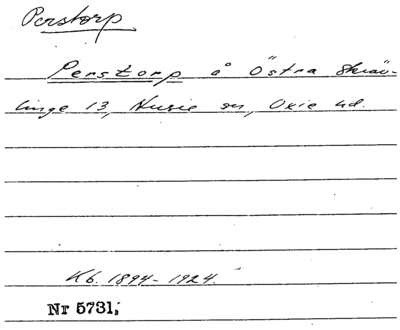 Perstorp
Perstorp å Östra Skräv-
linge 13, Husie sn, Oxie hd.
Kb. 1894-1924.
Nr 5731,